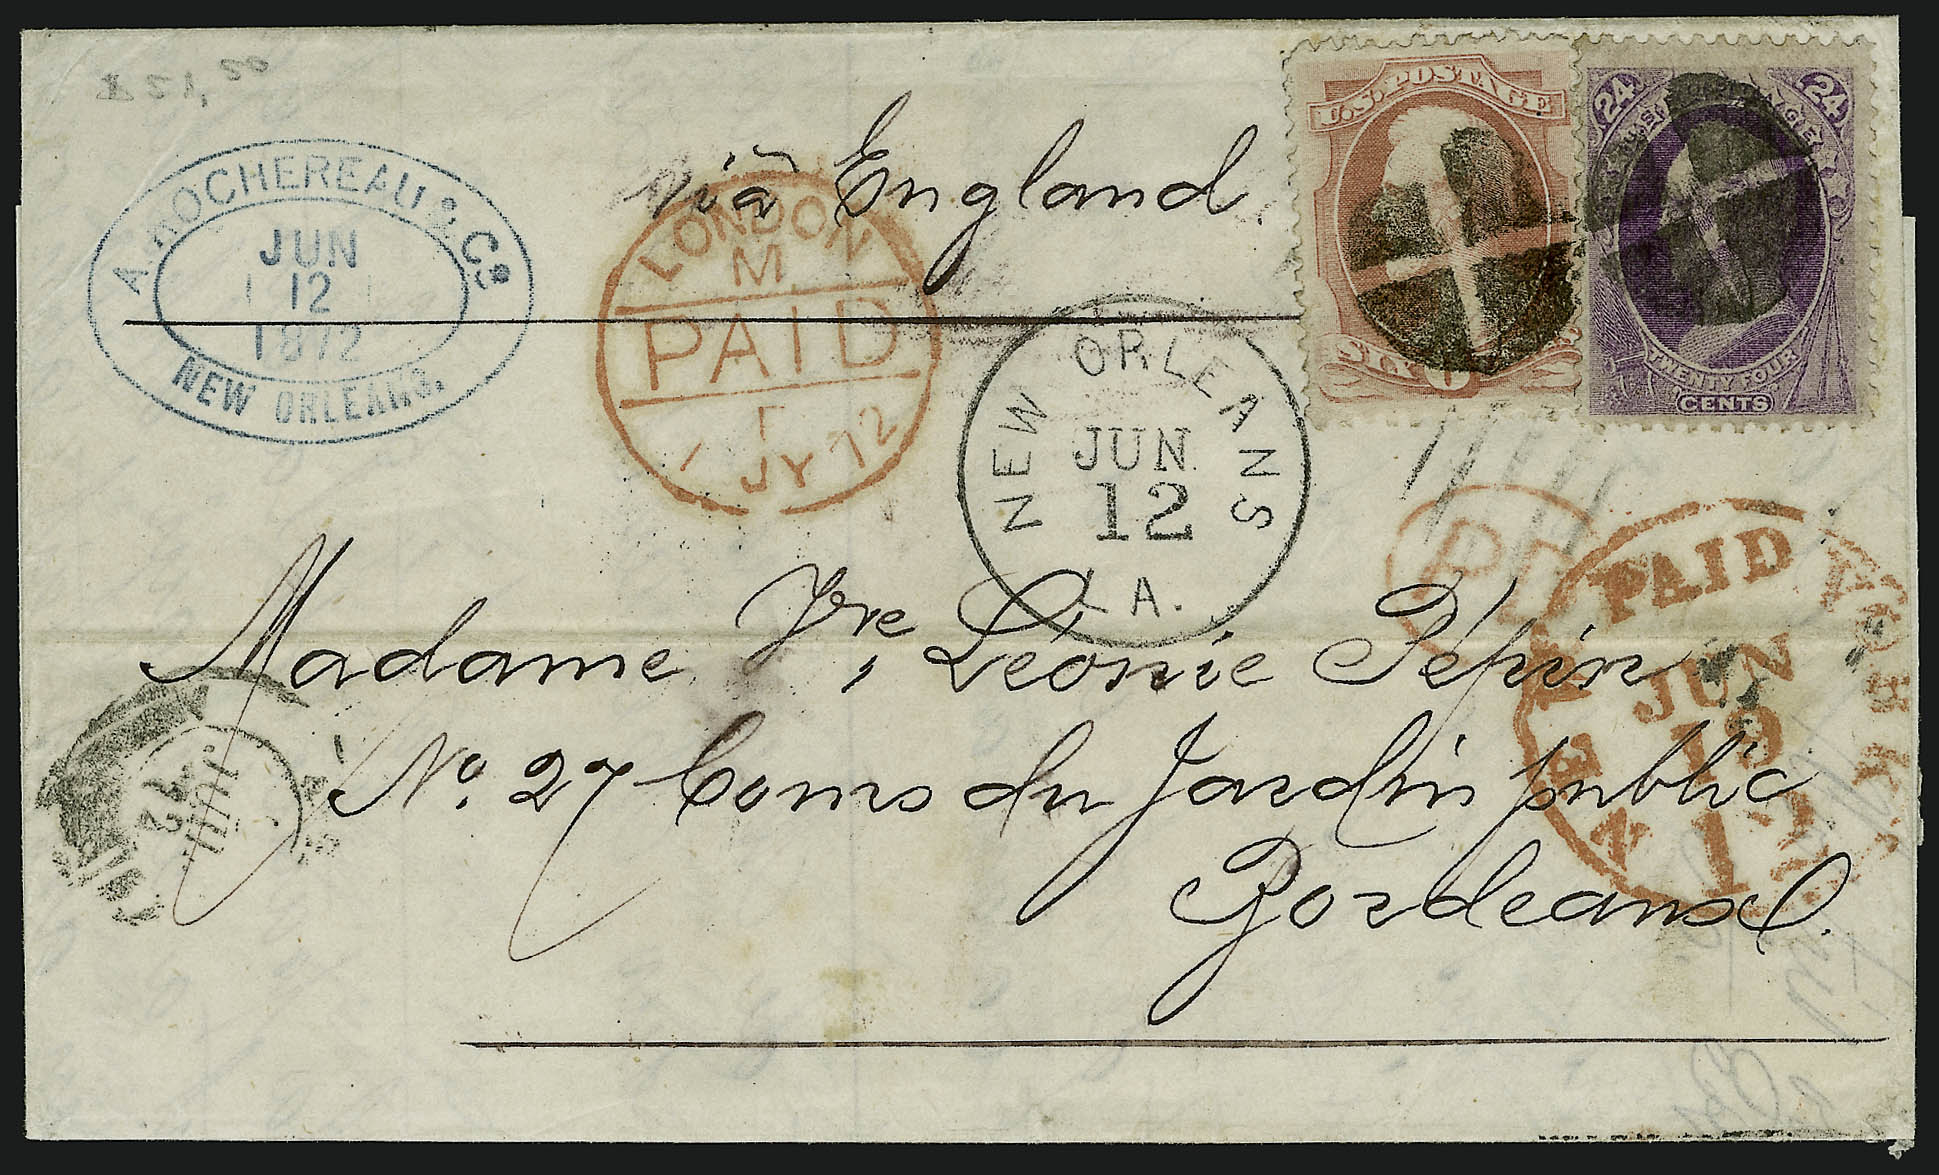 $ 51,50
A. ROCHEREAU & Cº
JUN
12
1872
NEW ORLEANS.
viâ England.
LONDON
M
PAID
1 JY 72
U.S. POSTAGE
SIX 6
24 U.S. POSTAGE 24
TWENTY FOUR
CENTS
NEW ORLEANS
JUN
12
LA.
PD
NEW YORK
PAID
JUN
19
12
Madame Vve Léonie Pépin
Nº 27 Cours du Jardin public
Bordeaux.
JUIL
72